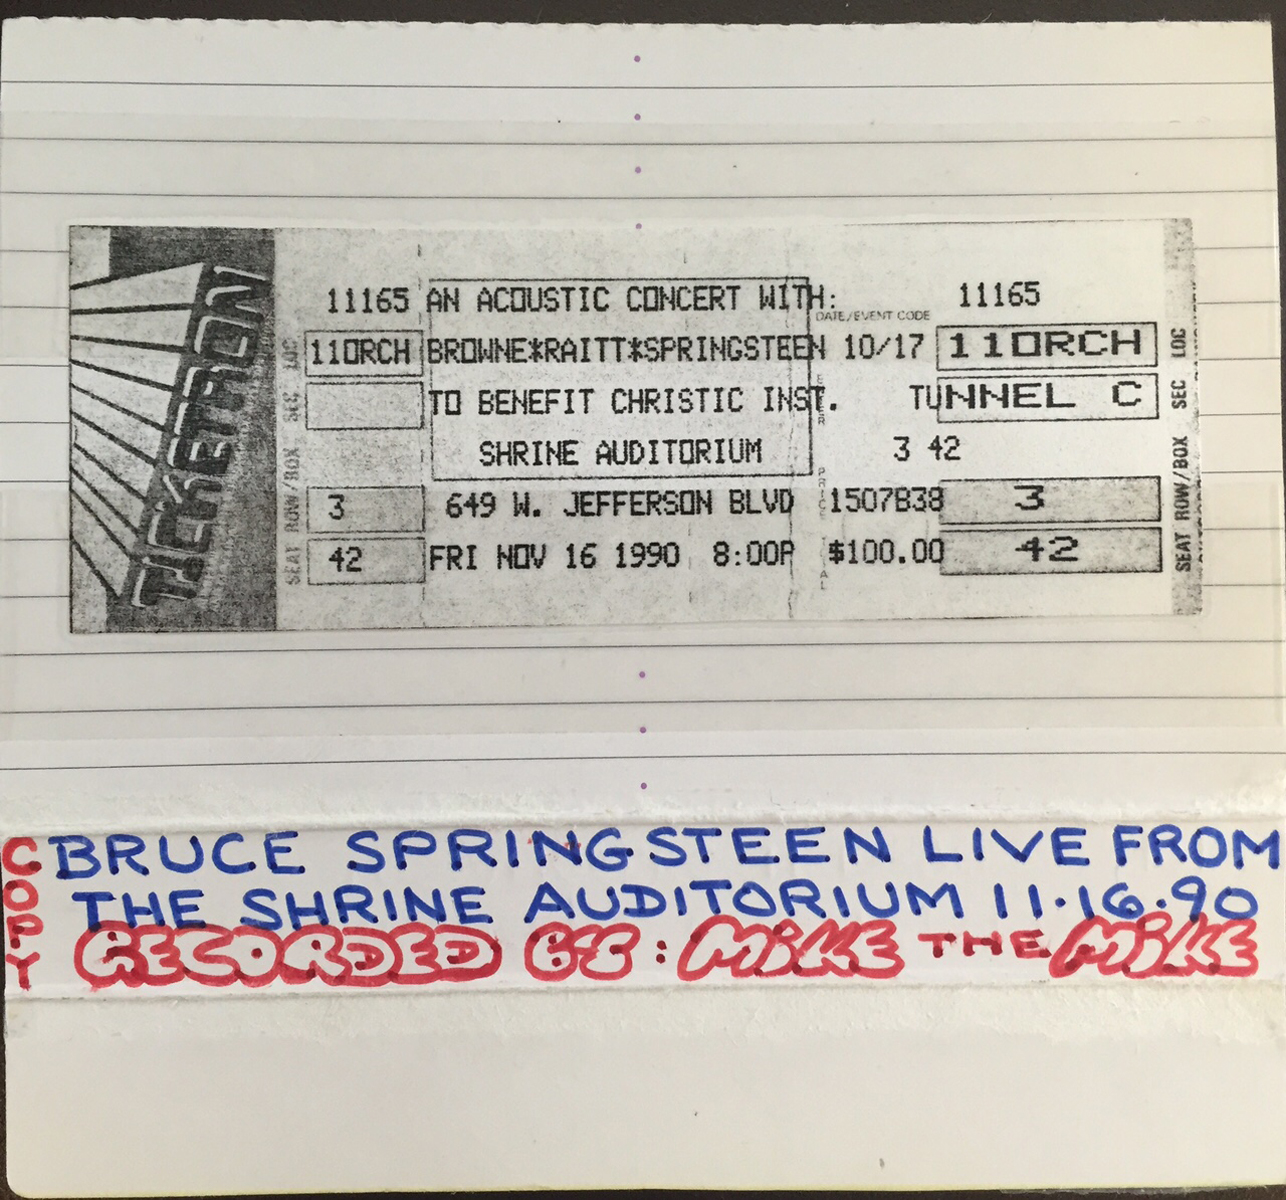 TICKETRON
SEAT ROW/BOX SEC LOC
11165 AN ACOUSTIC CONCERT WITH: 11165
DATE/EVENT CODE
11ORCH BROWNE*RAITT*SPRINGSTEEN 10/17 11ORCH
TO BENEFIT CHRISTIC INST. TUNNEL C
SHRINE AUDITORIUM 3 42
3 649 W. JEFFERSON BLVD 1507B38 3
42 FRI NOV 16 1990 8:00P $100.00 42
SEAT ROW/BOX SEC LOC
COPY
BRUCE SPRINGSTEEN LIVE FROM
THE SHRINE AUDITORIUM 11.16.90
RECORDED BY: MiKE THE MiKE